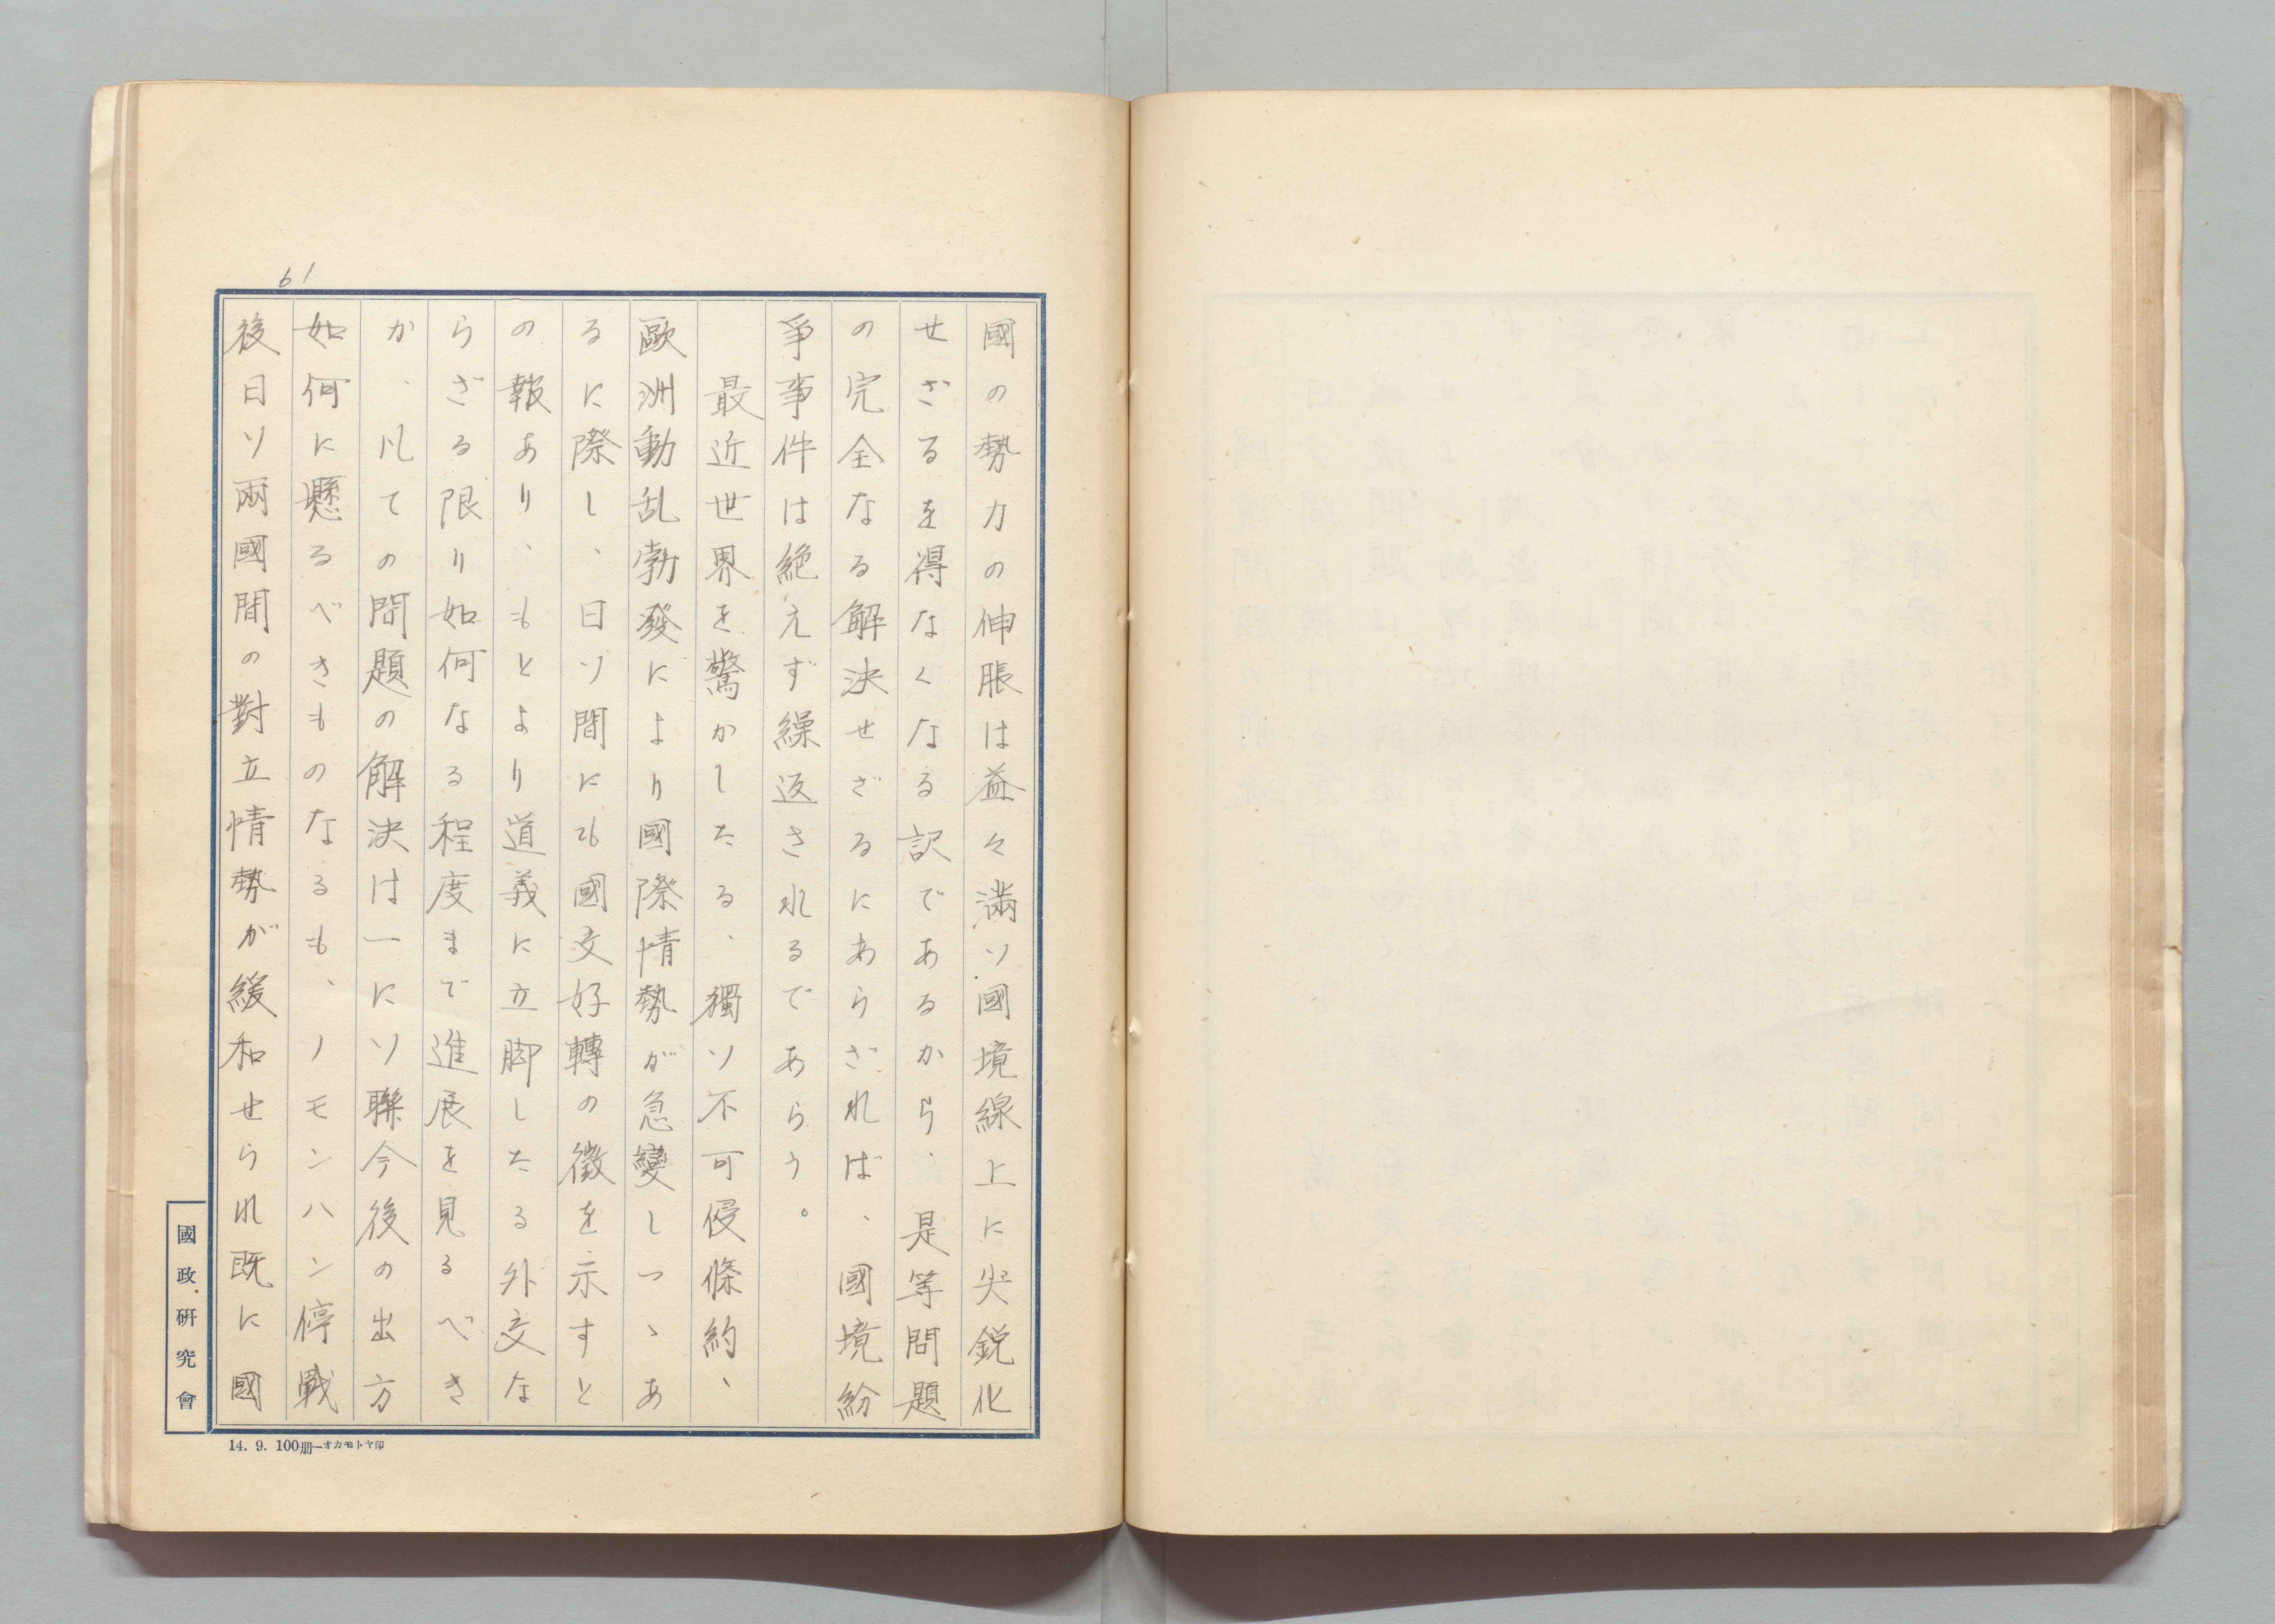 61
國の勢力の伸脹は益々満ソ國境線上に尖鋭化
せざるを得なくなる訳であるから、是等問題
の完全なる解決せざるにあらざれば、國境紛
爭事件は絶えず繰返されるであらう。
最近世界を驚かしたる、獨ソ不可侵條約、
歐洲動乱勃發により國際情勢が急變しつゝあ
るに際し、日ソ間にも國交好轉の徴を示すと
の報あり、もとより道義に立脚したる外交な
らざる限り如何なる程度まで進展を見るべき
か、凡ての問題の解決は一にソ聯今後の出方
如何に懸るべきものなるも、ノモンハン停戰
後日ソ兩國間の對立情勢が緩和せられ既に國
國政研究會
14. 9. 100册―オカモトヤ印